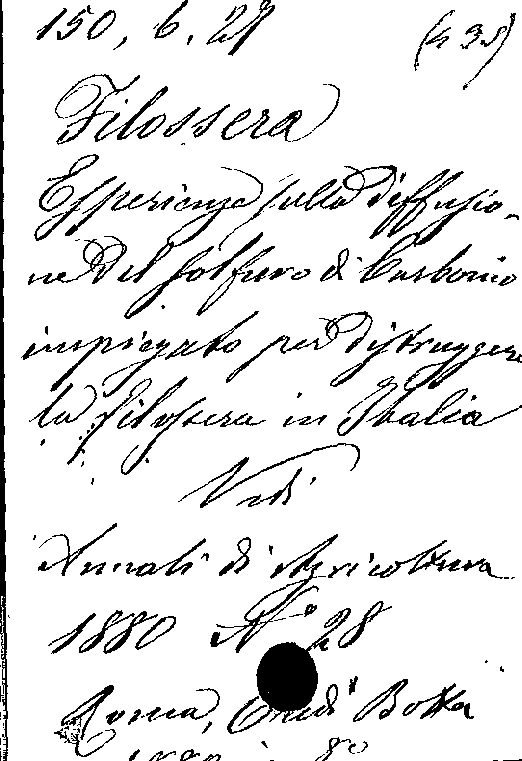 150. 6. 27 (435)
Filossera
Esperienze sulla diffusio-
ne del solfuro di Carbonio
impiegato per distruggere
la filossera in Italia
Vedi
Annali di Agricoltura
1880 N° 28
Roma, Eredi Botta
1880 in 8°